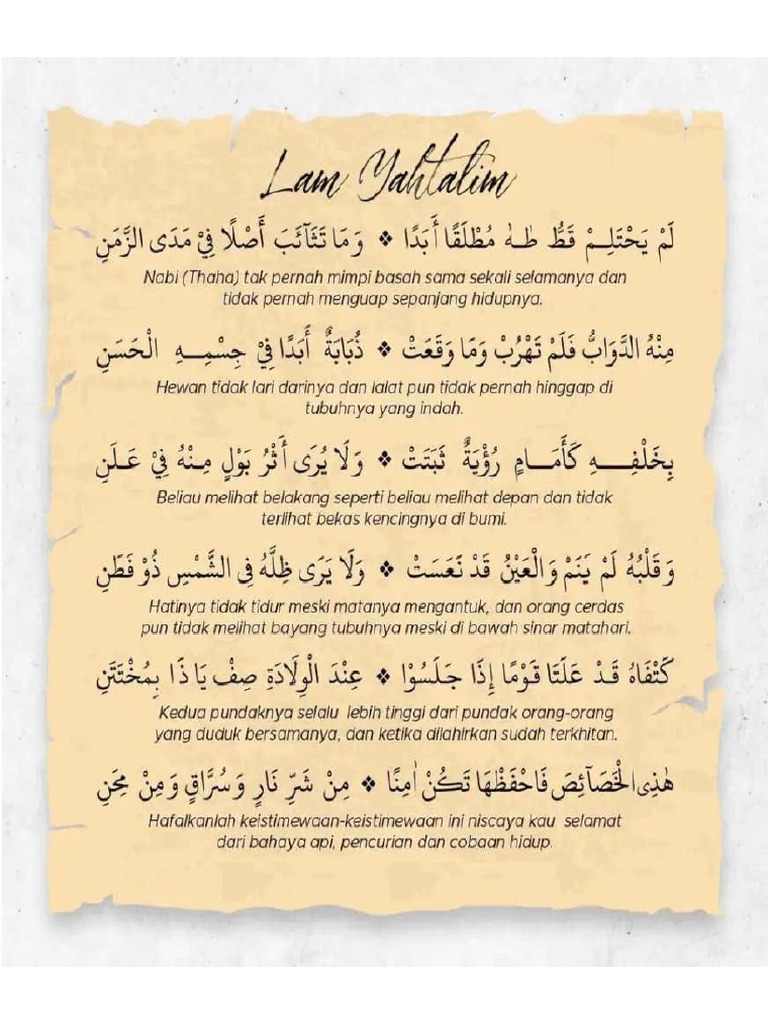 Lam Yahtalim
لَمْ يَحْتَلِمْ قَطُّ طٰهٰ مُطْلَقًا أَبَدًا ❖ وَمَا تَثَآئَبَ أَصْلًا فِيْ مَدَى الزَّمَنِ
Nabi (Thaha) tak pernah mimpi basah sama sekali selamanya dan
tidak pernah menguap sepanjang hidupnya.
مِنْهُ الدَّوَابُّ فَلَمْ تَهْرُبْ وَمَا وَقَعَتْ ❖ ذُبَابَةٌ أَبَدًا فِيْ جِسْمِهِ الْحَسَنِ
Hewan tidak lari darinya dan lalat pun tidak pernah hinggap di
tubuhnya yang indah.
بِخَلْفِهِ كَأَمَامٍ رُؤْيَةٌ ثَبَتَتْ ❖ وَلَا يُرَى أَثْرُ بَوْلٍ مِنْهُ فِيْ عَلَنِ
Beliau melihat belakang seperti beliau melihat depan dan tidak
terlihat bekas kencingnya di bumi.
وَقَلْبُهُ لَمْ يَنَمْ وَالْعَيْنُ قَدْ نَعَسَتْ ❖ وَلَا يَرَى ظِلَّهُ فِى الشَّمْسِ ذُوْ فَطَنِ
Hatinya tidak tidur meski matanya mengantuk, dan orang cerdas
pun tidak melihat bayang tubuhnya meski di bawah sinar matahari.
كَتْفَاهُ قَدْ عَلَتَا قَوْمًا إِذَا جَلَسُوْا ❖ عِنْدَ الْوِلَادَةِ صِفْ يَا ذَا بِمُخْتَتَنِ
Kedua pundaknya selalu lebih tinggi dari pundak orang-orang
yang duduk bersamanya, dan ketika dilahirkan sudah terkhitan.
هٰذِى الْخَصَآئِصَ فَاحْفَظْهَا تَكُنْ اٰمِنًا ❖ مِنْ شَرِّ نَارٍ وَسُرَّاقٍ وَمِنْ مِحَنِ
Hafalkanlah keistimewaan-keistimewaan ini niscaya kau selamat
dari bahaya api, pencurian dan cobaan hidup.